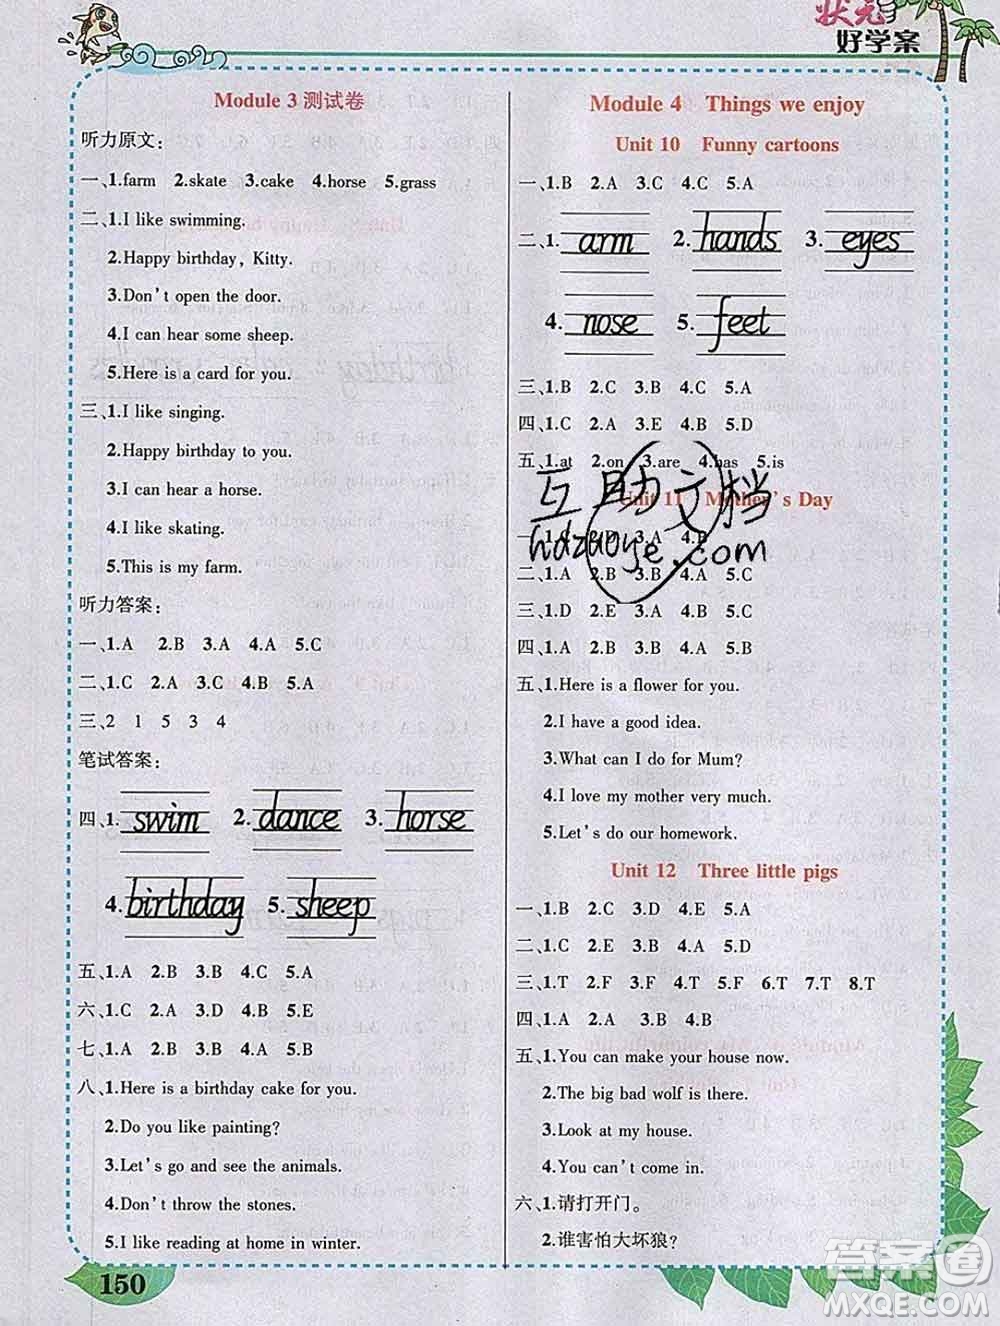 状元
好学案
Module 3 测试卷
听力原文:
一、1.farm 2.skate 3.cake 4.horse 5.grass
二、1.I like swimming.
2.Happy birthday, Kitty.
3.Don't open the door.
4.I can hear some sheep.
5.Here is a card for you.
三、1.I like singing.
2.Happy birthday to you.
3.I can hear a horse.
4.I like skating.
5.This is my farm.
听力答案:
一、1.A 2.B 3.A 4.A 5.C
二、1.C 2.A 3.C 4.B 5.A
三、2 1 5 3 4
笔试答案:
四、1.swim 2.dance 3.horse
4.birthday 5.sheep
五、1.A 2.B 3.B 4.C 5.A
六、1.B 2.A 3.D 4.A 5.B
七、1.A 2.B 3.B 4.A 5.B
八、1.Here is a birthday cake for you.
2.Do you like painting?
3.Let's go and see the animals.
4.Don't throw the stones.
5.I like reading at home in winter.
150
Module 4 Things we enjoy
Unit 10 Funny cartoons
一、1.B 2.A 3.C 4.C 5.A
二、1.arm 2.hands 3.eyes
4.nose 5.feet
三、1.B 2.C 3.B 4.C 5.A
四、1.C 2.A 3.E 4.B 5.D
五、1.at 2.on 3.are 4.has 5.is
Unit 11 Mother's Day
一、1.C 2.D 3.A 4.B
二、1.A 2.B 3.B 4.A 5.C
三、1.D 2.E 3.A 4.B 5.C
四、1.A 2.B 3.A 4.B 5.B
五、1.Here is a flower for you.
2.I have a good idea.
3.What can I do for Mum?
4.I love my mother very much.
5.Let's do our homework.
Unit 12 Three little pigs
一、1.B 2.C 3.D 4.E 5.A
二、1.C 2.B 3.A 4.A 5.D
三、1.T 2.F 3.F 4.F 5.T 6.T 7.T 8.T
四、1.A 2.A 3.B 4.B
五、1.You can make your house now.
2.The big bad wolf is there.
3.Look at my house.
4.You can't come in.
六、1.请打开门。
2.谁害怕大坏狼?
互助文档
hdzuoye.com
答案圈
MXQE.COM